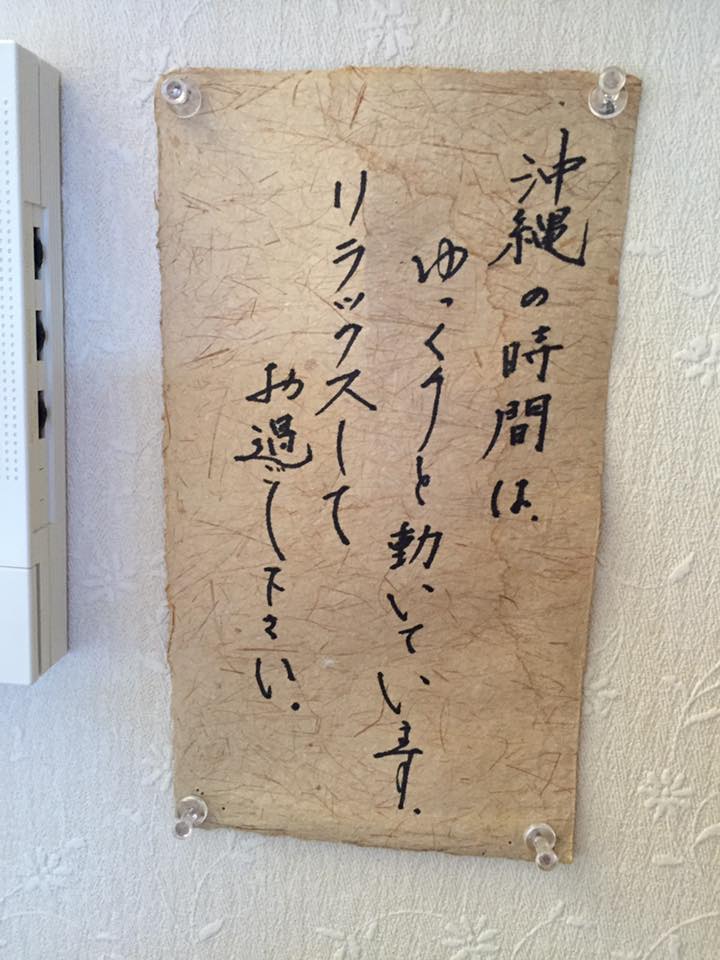 沖縄の時間は、
ゆっくりと動いています。
リラックスして
お過ごし下さい。